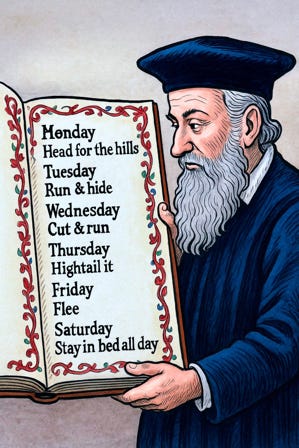 Monday
Head for the hills
Tuesday
Run & hide
Wednesday
Cut & run
Thursday
Hightail it
Friday
Flee
Saturday
Stay in bed all day